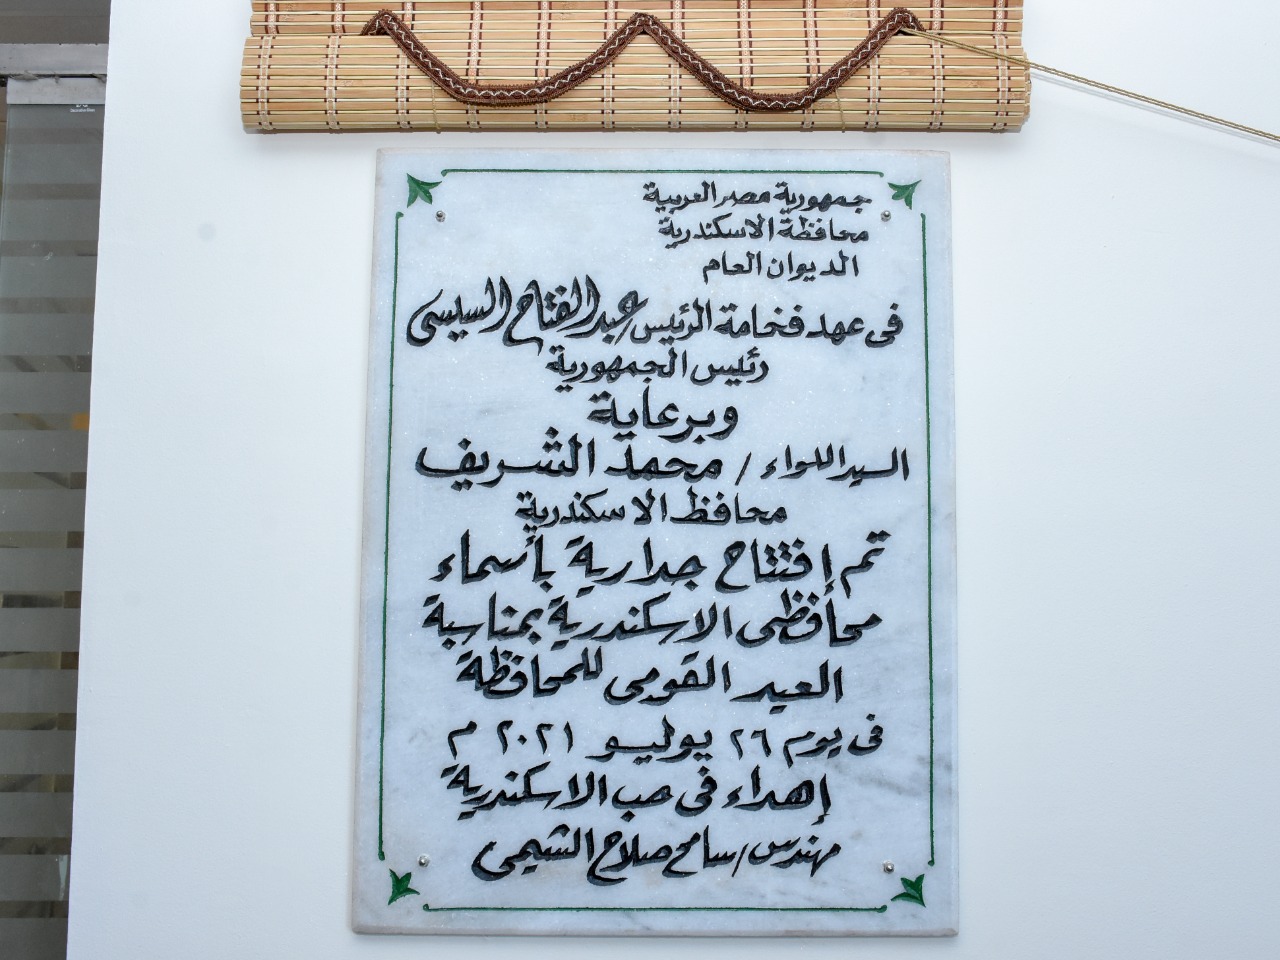 جمهورية مصر العربية
محافظة الاسكندرية
الديوان العام
فى عهد فخامة الرئيس/عبدالفتاح السيسى
رئيس الجمهورية
وبرعاية
السيد اللواء / محمد الشريف
محافظ الاسكندرية
تم إفتتاح جدارية بأسماء
محافظى الاسكندرية بمناسبة
العيد القومى للمحافظة
فى يوم ٢٦ يوليو ٢٠٢١ م
إهداء فى حب الاسكندرية
مهندس/سامح صلاح الشيمى